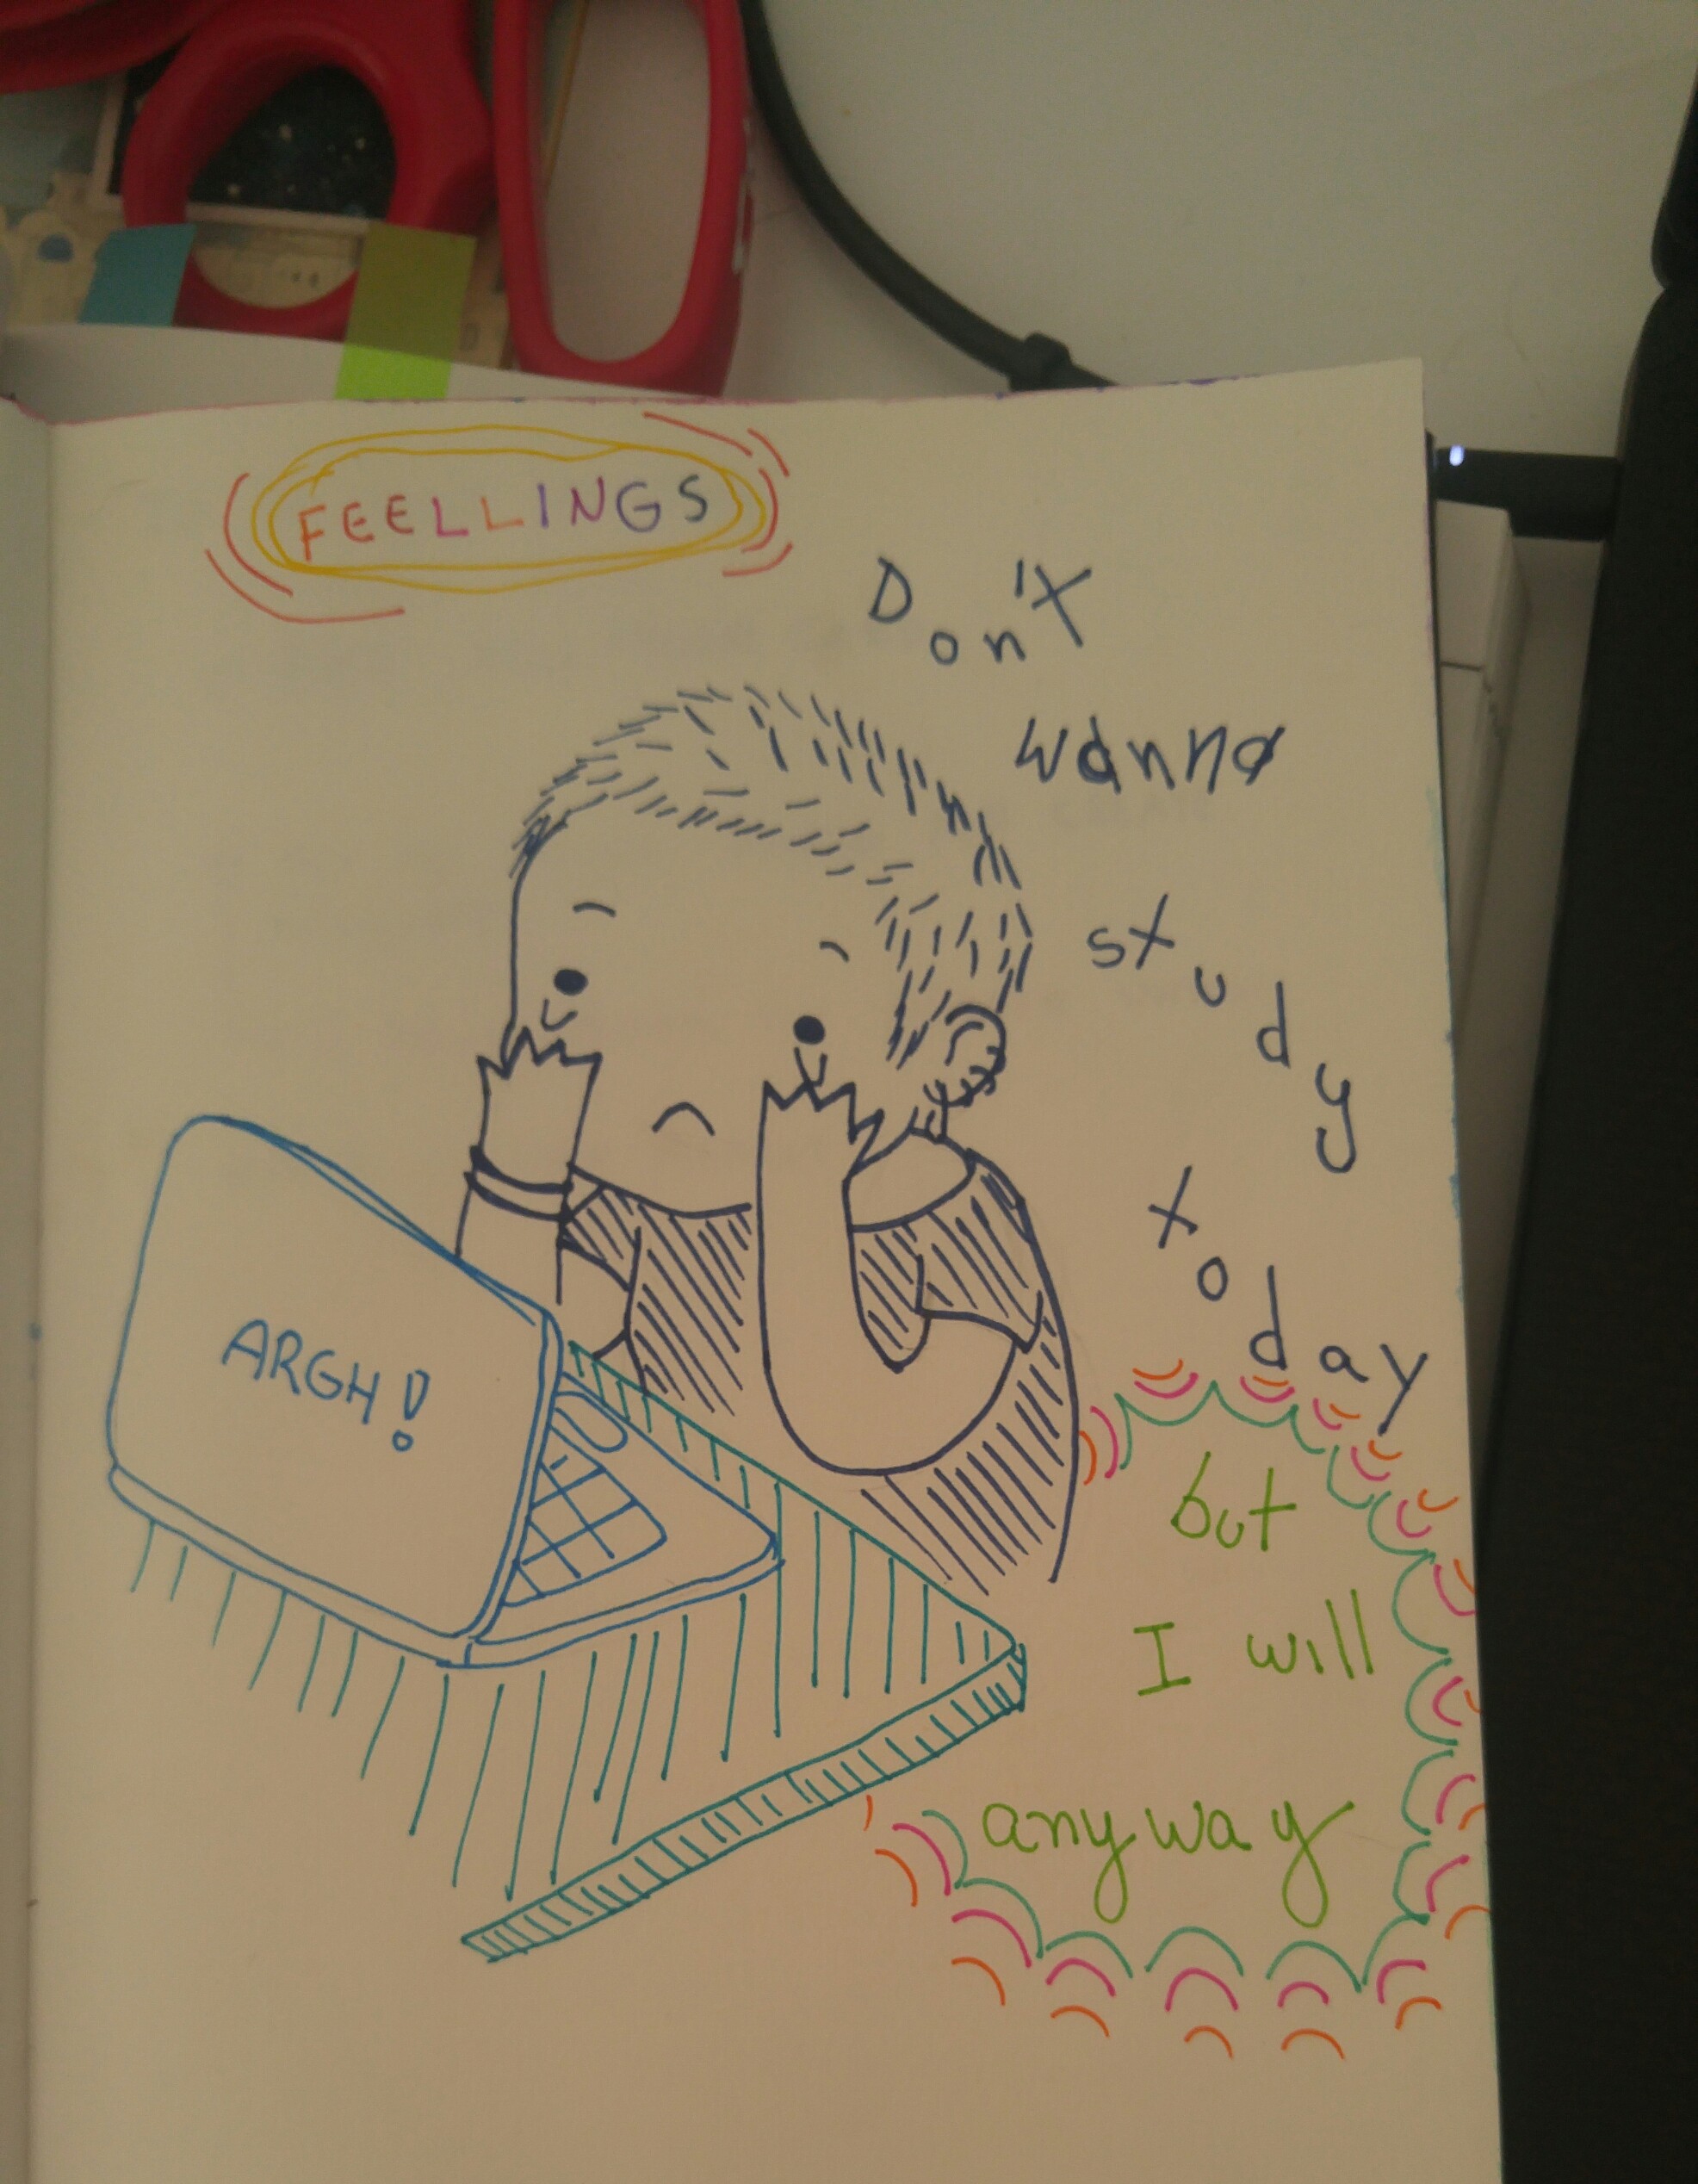 FEELLINGS
Don't
wanna
study
today
ARGH!
but
I will
anyway